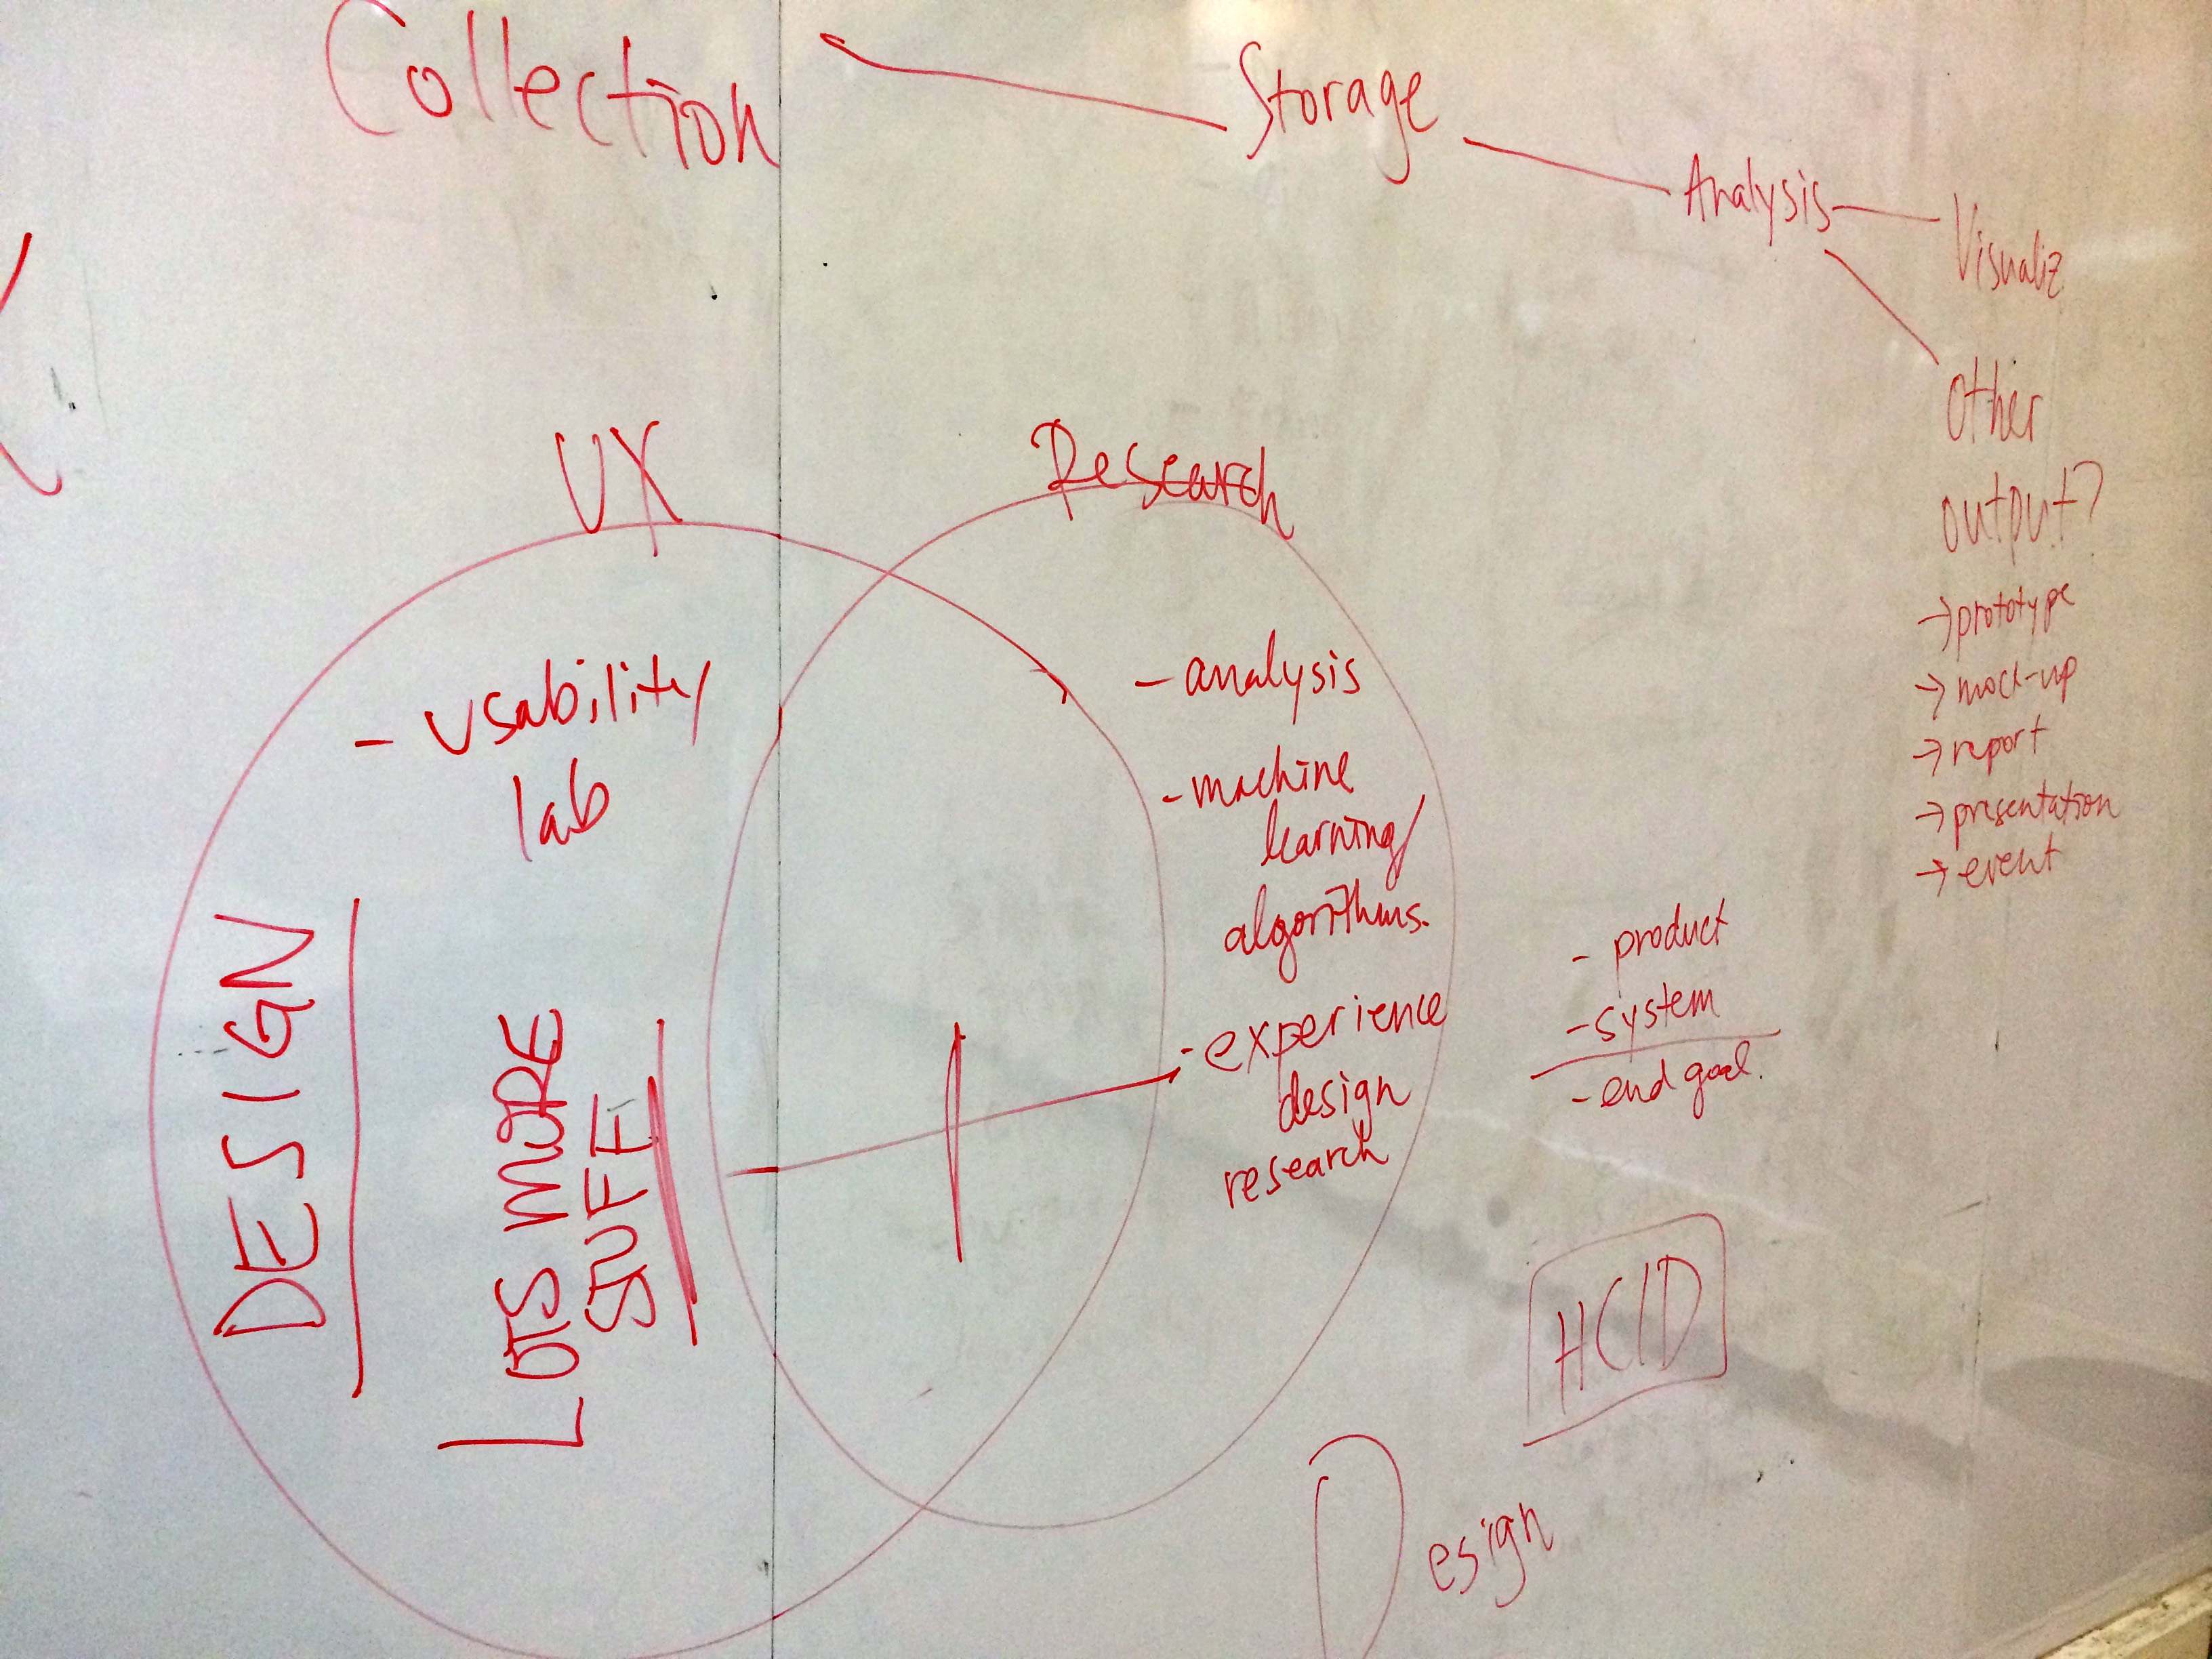 Collection
Storage
Analysis
Visualiz
Other
output?
→ prototype
→ mock-up
→ report
→ presentation
→ event
UX
- usability
lab
DESIGN
LOTS MORE
STUFF
Research
- analysis
- machine
learning/
algorithms.
- experience
design
research
- product
- system
- end goal.
HCID
Design